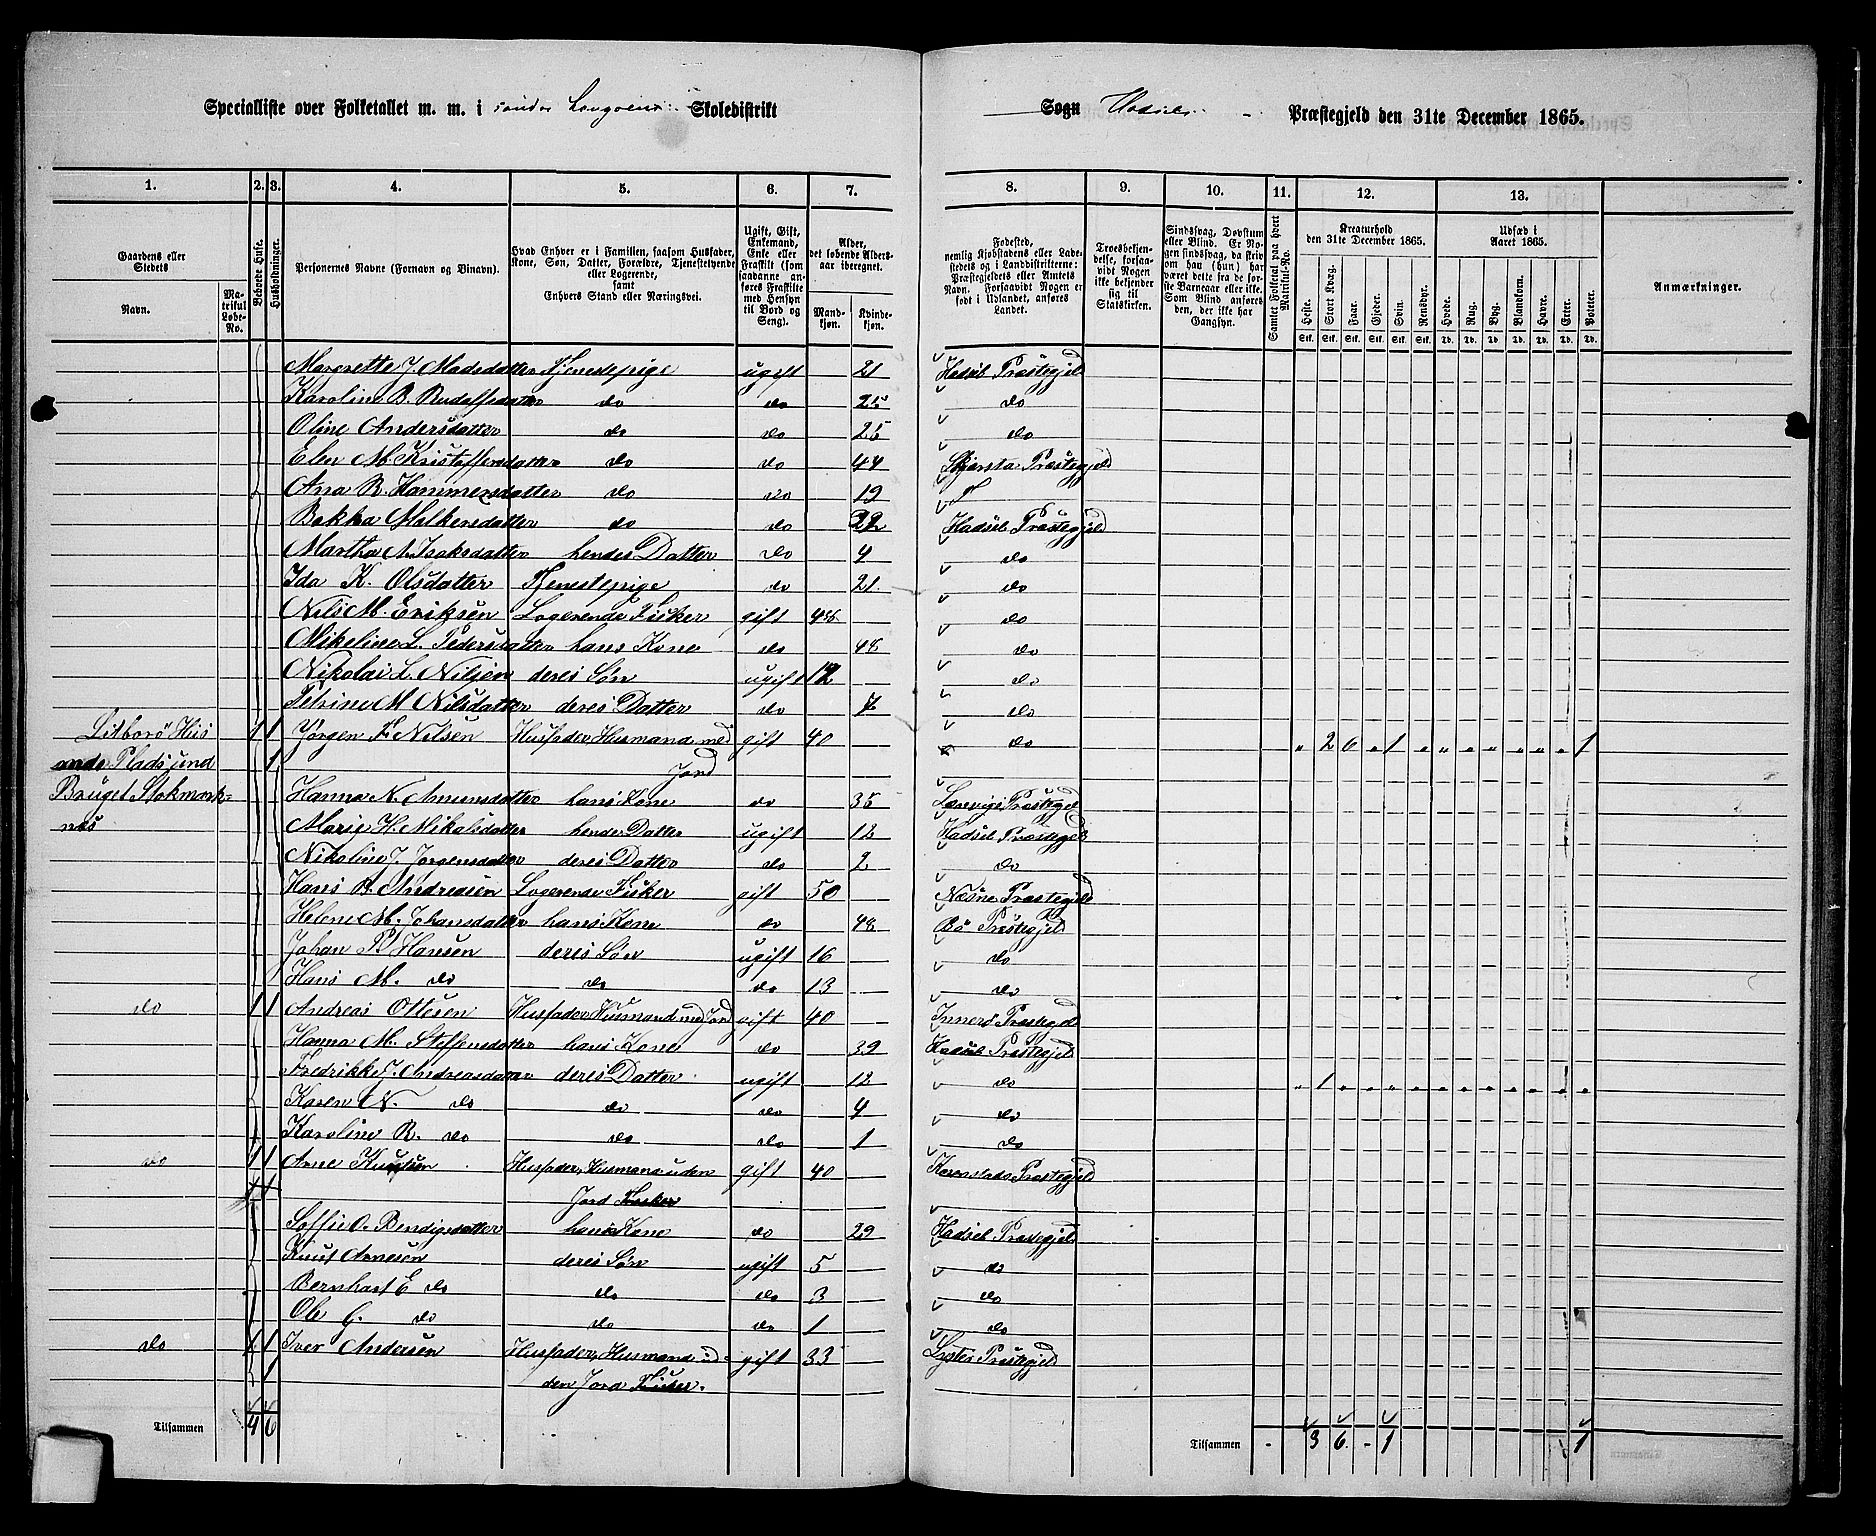 Specialliste over Folketallet m. m. i søndre Langøens Skoledistrikt
Sogn Hadsels Præstegjeld den 31te December 1865.
1. 2. 3. 4. 5. 6. 7. 8. 9. 10. 11. 12. 13.
Gaardens eller Stedets
Navn.
Matrikul Løbe-No.
Beboede Huse.
Husholdninger.
Personernes Navne (Fornavn og Binavn).
Hvad Enhver er i Familien, saasom Husfader, Kone, Søn, Datter, Forældre, Tjenestetyende eller Logerende, samt Enhvers Stand eller Næringsvei.
Ugift, Gift, Enkemand, Enke eller Fraskilt (som saadanne anføres Fraskilte med Hensyn til Bord og Seng).
Alder, det løbende Alders-aar iberegnet.
Mandkjøn.
Kvindekjøn.
Fødested, nemlig Kjøbstadens eller Ladestedets og i Landdistrikterne: Præstegjeldets eller Amtets Navn. Forsaavidt Nogen er født i Udlandet, anføres Landet.
Troesbekjendelse, forsaavidt Nogen ikke bekjender sig til Statskirken.
Sindssvag, Døvstum eller Blind. Er Nogen sindssvag, da skriv om han (hun) har været dette fra de første Barneaar eller ikke. Som Blind anføres den, der ikke har Gangsyn.
Samlet Folketal paa hvert Matrikul-No.
Kreaturhold den 31te December 1865.
Heste. Stort Kvæg. Faar. Gjeder. Svin. Rensdyr.
Stk. Stk. Stk. Stk. Stk. Stk.
Udsæd i Aaret 1865.
Hvede. Rug. Byg. Blandkorn. Havre. Erter. Poteter.
Td. Td. Td. Td. Td. Td. Td.
Anmærkninger.
Margrette J Madsdatter Tjenestepige ugift 21 Hadsel Præstegjeld
Karoline B. Rudolfsdatter do do 25 do
Oline Andersdatter do do 25 do
Elen M. Kristoffersdatter do do 44 Skjersta Præstegjeld
Ana R. Hammersdatter do do 19
Bakka Molkersdatter do do 22 Hadsel Præstegjeld
Martha A. Isaksdatter hendes Datter do 4 do
Ida K. Olsdatter Tjenestepige do 21 do
Nils M. Eriksen Logerende Fisker gift 46 do
Mikeline L. Pedersdatter hans Kone do 48 do
Nikolai L. Nilsen deres Søn ugift 12 do
Petrine M Nilsdatter deres Datter do 7 do
Litborø Hus 1 1 Jørgen F. Nilsen Husfader, Husmand med gift 40 do „ 2 6 „ 1 „ „ „ „ „ „ „ 1
mds Plads und 1 Jord
Bruget Stokmark- Hanna N. Amunsdatter hans Kone do 35 Lærvigs Præstegjel
næs Marie H. Mikalsdatter hendes Datter ugift 12 Hadsel Præstegjeld
Nikoline J. Jørgensdatter deres Datter do 2 do
Hans B. Andreasen Logerende Fisker gift 50 Næsne Præstegjeld
Helene M. Johansdatter hans Kone do 48 Bö Præstegjeld
Johan P. Hansen deres Søn ugift 16 do
Hans M. do do do 13 do
do 1 1 Andreas Ottesen Husfader, Husmand med Jord gift 40 Innerø Præstegjeld
Hanna M. Steffensdatter hans Kone do 39 Hadsel Præstegjel
Fredrikke J. Andreasdatter deres Datter ugift 12 do „ 1 „ „ „ „ „ „ „ „ „ „ „
Karen N. do do do 4 do
Karoline B. do do do 1 do
do 1 1 Arne Knutsen Husfader, Husmand uden gift 40 Præstegjeld
Jord Fisker
Soffie O. Bendigsdatter hans Kone do 29 Hadsel Præstegjel
Knut Arnesen deres Søn ugift 5 do
Bernhart E do do do 3 do
Ole G. do do do 1 do
do 1 1 Iver Andersen Husfader, Husmand ud- gift 33 Lyster Præstegjeld
den Jord Fisker.
Tilsammen 4 6
Tilsammen - 3 6 - 1 1